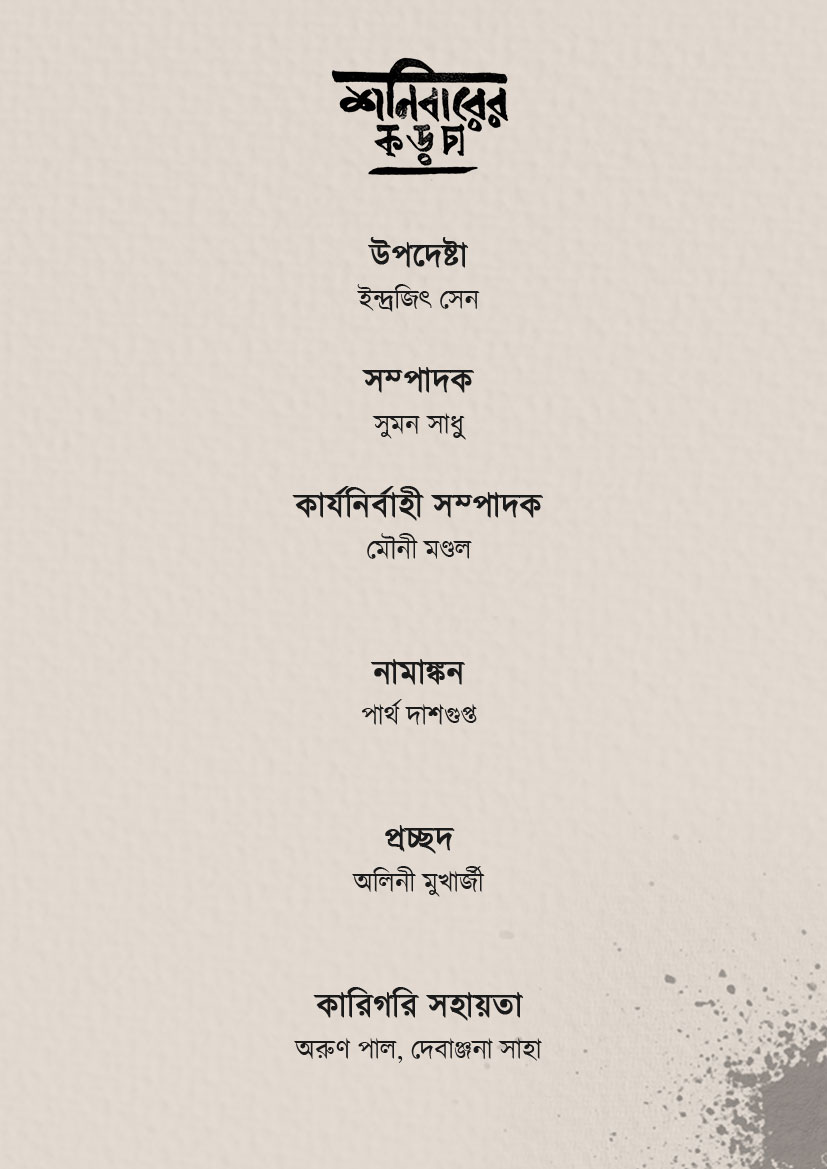 শনিবারের
কড়চা
উপদেষ্টা
ইন্দ্রজিৎ সেন
সম্পাদক
সুমন সাধু
কার্যনির্বাহী সম্পাদক
মৌনী মণ্ডল
নামাঙ্কন
পার্থ দাশগুপ্ত
প্রচ্ছদ
অলিনী মুখার্জী
কারিগরি সহায়তা
অরুণ পাল, দেবাঞ্জনা সাহা